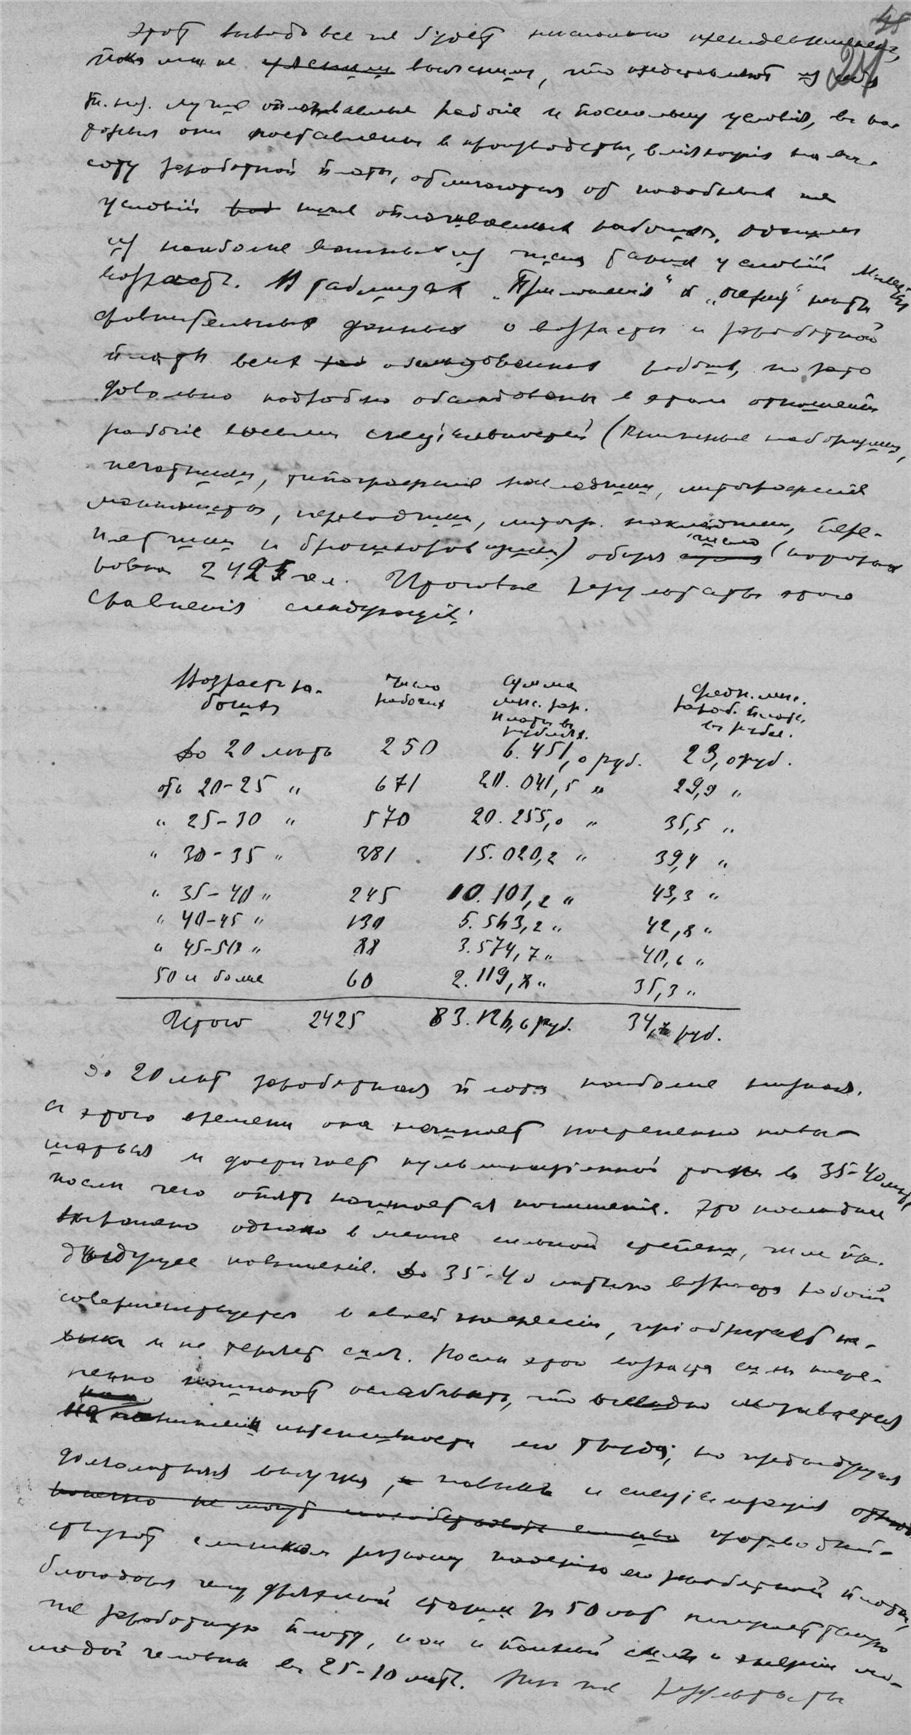 48
Этот вывод все же будет несколько преждевременен,
пока мы не выясним, что представляют из себя
т. наз. лучше оплачиваемые рабочие и поскольку условия, в ко-
торыя они поставлены в производстве, влияющия на вы-
соту заработной платы, отличаются от подобных же
условий ниже оплачиваемых рабочих. Одним
из наиболее важных из числа таких условий является
возраст. В таблицах „Приложения“ к „очерку“ нет
сравнительных данных о возрасте и заработной
плате всех обследованных рабочих, но зато
довольно подробно обследованы в этом отношении
рабочие восьми специальностей (книжные наборщики,
печатники, типографские накладчики, литографские
машинисты, переводчики, литогр. накладчики, пере-
плетчики и брошюровщики) общее число которых
равно 2425 чел. Итоговые результаты этого
сравнения следующие:
Возраст ра-
бочих
Число
рабочих
Сумма
мес. зар.
платы в
рублях.
Средн. мес.
зараб. плата
в рубл.
до 20 лет 250 6.451,0 руб. 23,0 руб.
от 20-25 „ 671 20.041,5 „ 29,9 „
„ 25-30 „ 570 20.255,0 „ 35,5 „
„ 30-35 „ 381 15.020,2 „ 39,4 „
„ 35-40 „ 245 10.101,2 „ 43,3 „
„ 40-45 „ 130 5.563,2 „ 42,8 „
„ 45-50 „ 88 3.574,7 „ 40,6 „
50 и более 60 2.119,8 „ 35,3 „
Итого 2425 83.126,6 руб. 34, руб.
До 20 лет заработная плата наиболее низкая.
С этого времени она начинает постепенно повы-
шаться и достигает кульминационной точки в 35-40 лет,
после чего опять начинается понижение. Это последнее
выражено однако в менее сильной степени, чем пре-
дыдущее повышение. До 35-40 летнего возраста рабочий
совершенствуется в своей профессии, приобретает на-
выки и не теряет сил. После этого возраста силы посте-
пенно начинают ослабевать, что отражается
на интенсивности его труда; но предыдущая
долголетняя выучка, навыки и специализация
противодей-
ствуют слишком резкому падению его заработной платы,
благодаря чему дряхлый старик за 50 лет получает такую
же заработную плату, как и полный силы и энергии мо-
лодой человек в 25-30 лет. Такие же результаты